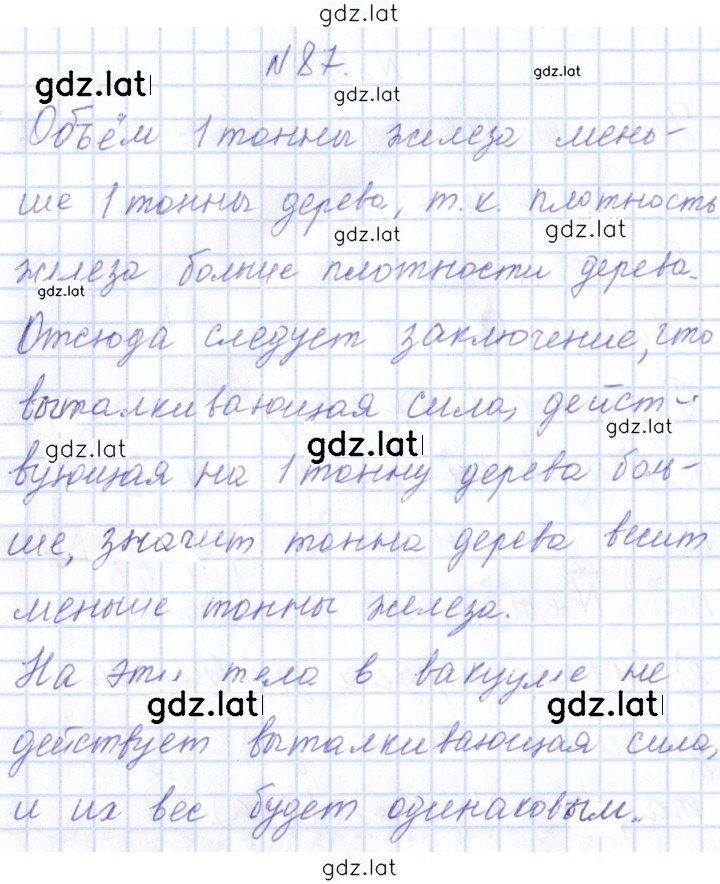 gdz.lat
N 87.
gdz.lat
gdz.lat
gdz.lat
Объём 1 тонны железа мень-
ше 1 тонны дерева, т.к. плотность
gdz.lat
gdz.lat
железа больше плотности дерева.
gdz.lat
Отсюда следует заключение, что
выталкивающая сила, дейст-
gdz.lat
gdz.lat
gdz.lat
вующая на 1 тонну дерева боль-
ше, значит тонна дерева весит
меньше тонны железа.
На эти тела в вакууме не
gdz.lat
gdz.lat
действует выталкивающая сила,
и их вес будет одинаковым.
gdz.lat